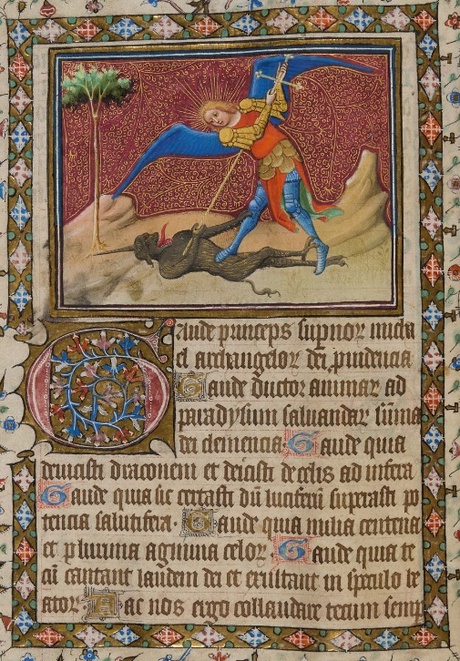 Gaude princeps supnor micha
el archangelor dei prudencia
Gaude ductor animar ad
paradysum saluandar suma
dei clemencia. Gaude quia
deuicisti draconem et deicisti de celis ad infera
Gaude quia sic certasti du luciferu superasti po
tencia salutifera. Gaude quia milia centena
et plurima agmina celor. Gaude quia te
cu cantant laudem dei et exultant in speculo le
ator. Hac nos ergo collaudare tecum semp